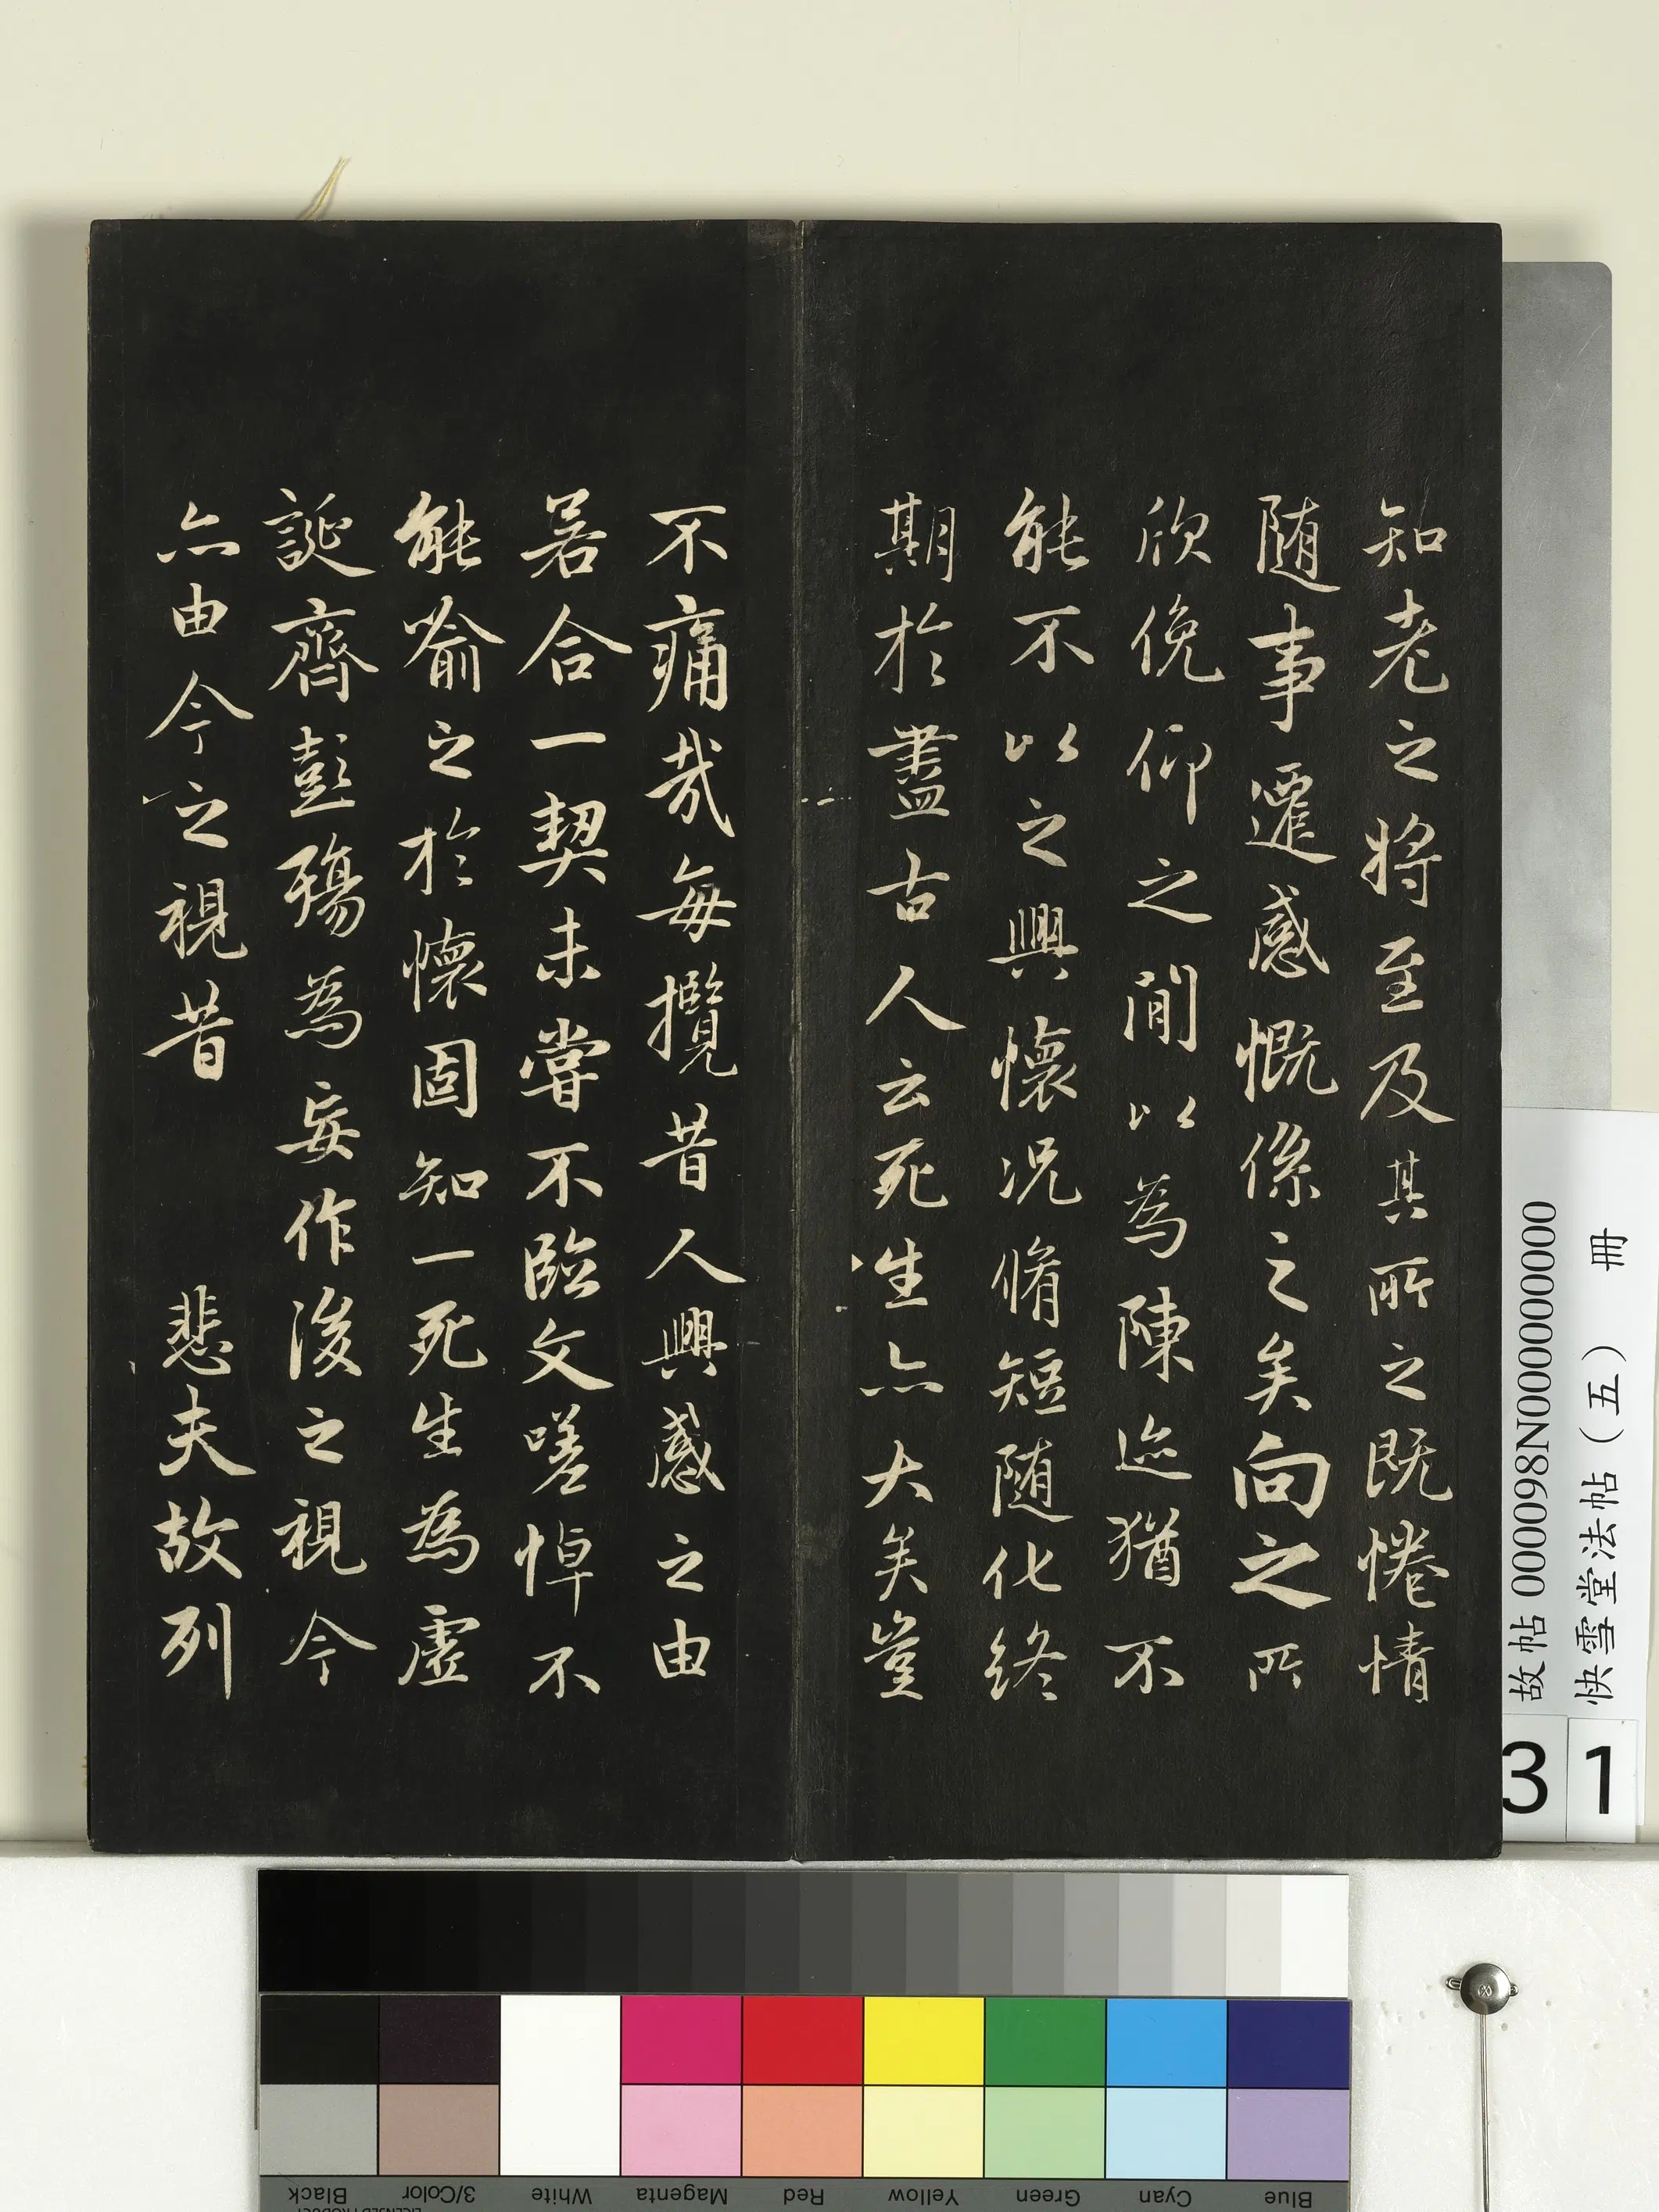 知老之將至及其所之既惓情
随事遷感慨係之矣向之所
欣俛仰之閒以為陳迹猶不
能不以之興懷况脩短随化終
期於盡古人云死生亦大矣豈
不痛哉每攬昔人興感之由
若合一契未甞不臨文嗟悼不
能喻之於懷固知一死生為虚
誕齊彭殤為妄作後之視今
亦由今之視昔 悲夫故列
故帖 000098N000000000
快雪堂法帖（五） 冊
3 1
Black 3/Color White Magenta Red Yellow Green Cyan Blue